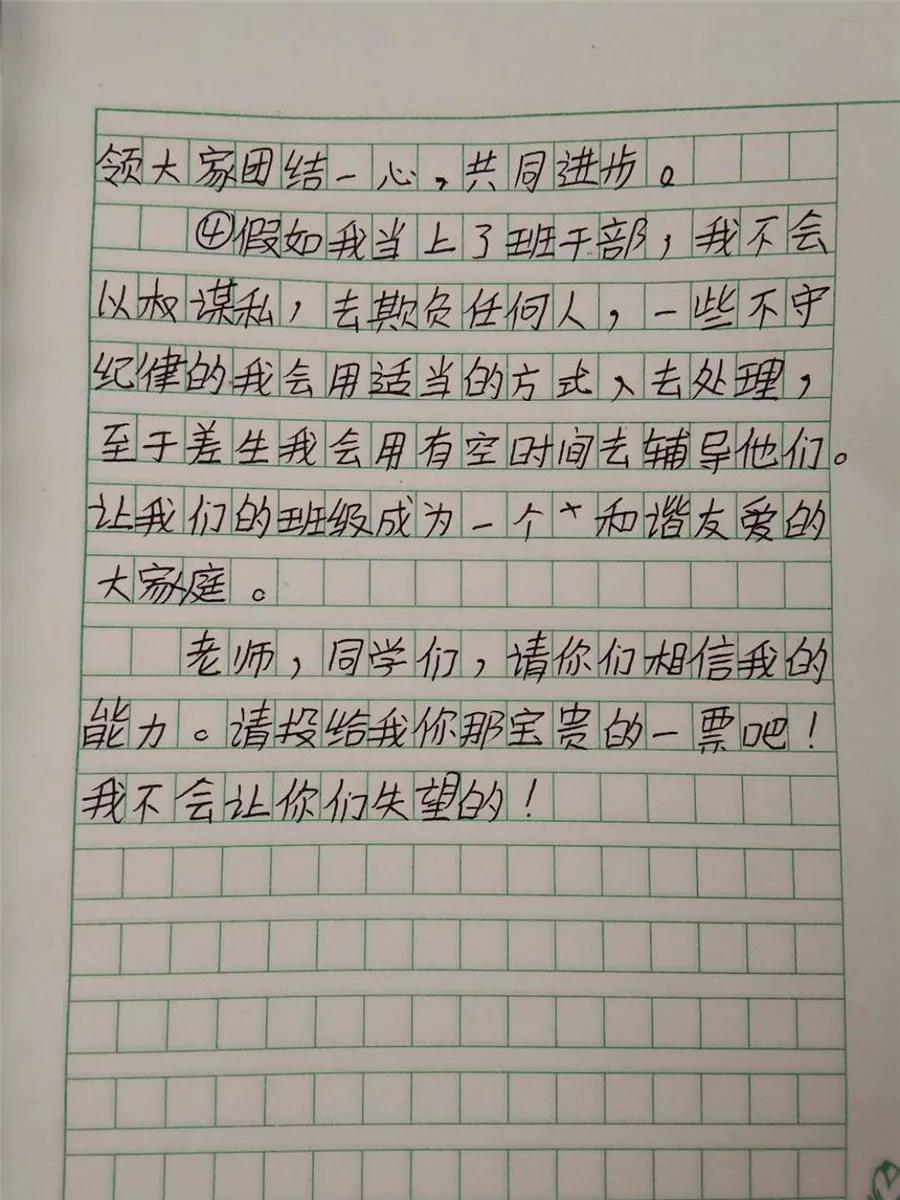 领大家团结一心，共同进步。
④假如我当上了班干部，我不会
以权谋私，去欺负任何人，一些不守
纪律的我会用适当的方式、去处理，
至于差生我会用有空时间去辅导他们。
让我们的班级成为一个和谐友爱的
大家庭。
老师，同学们，请你们相信我的
能力。请投给我你那宝贵的一票吧！
我不会让你们失望的！